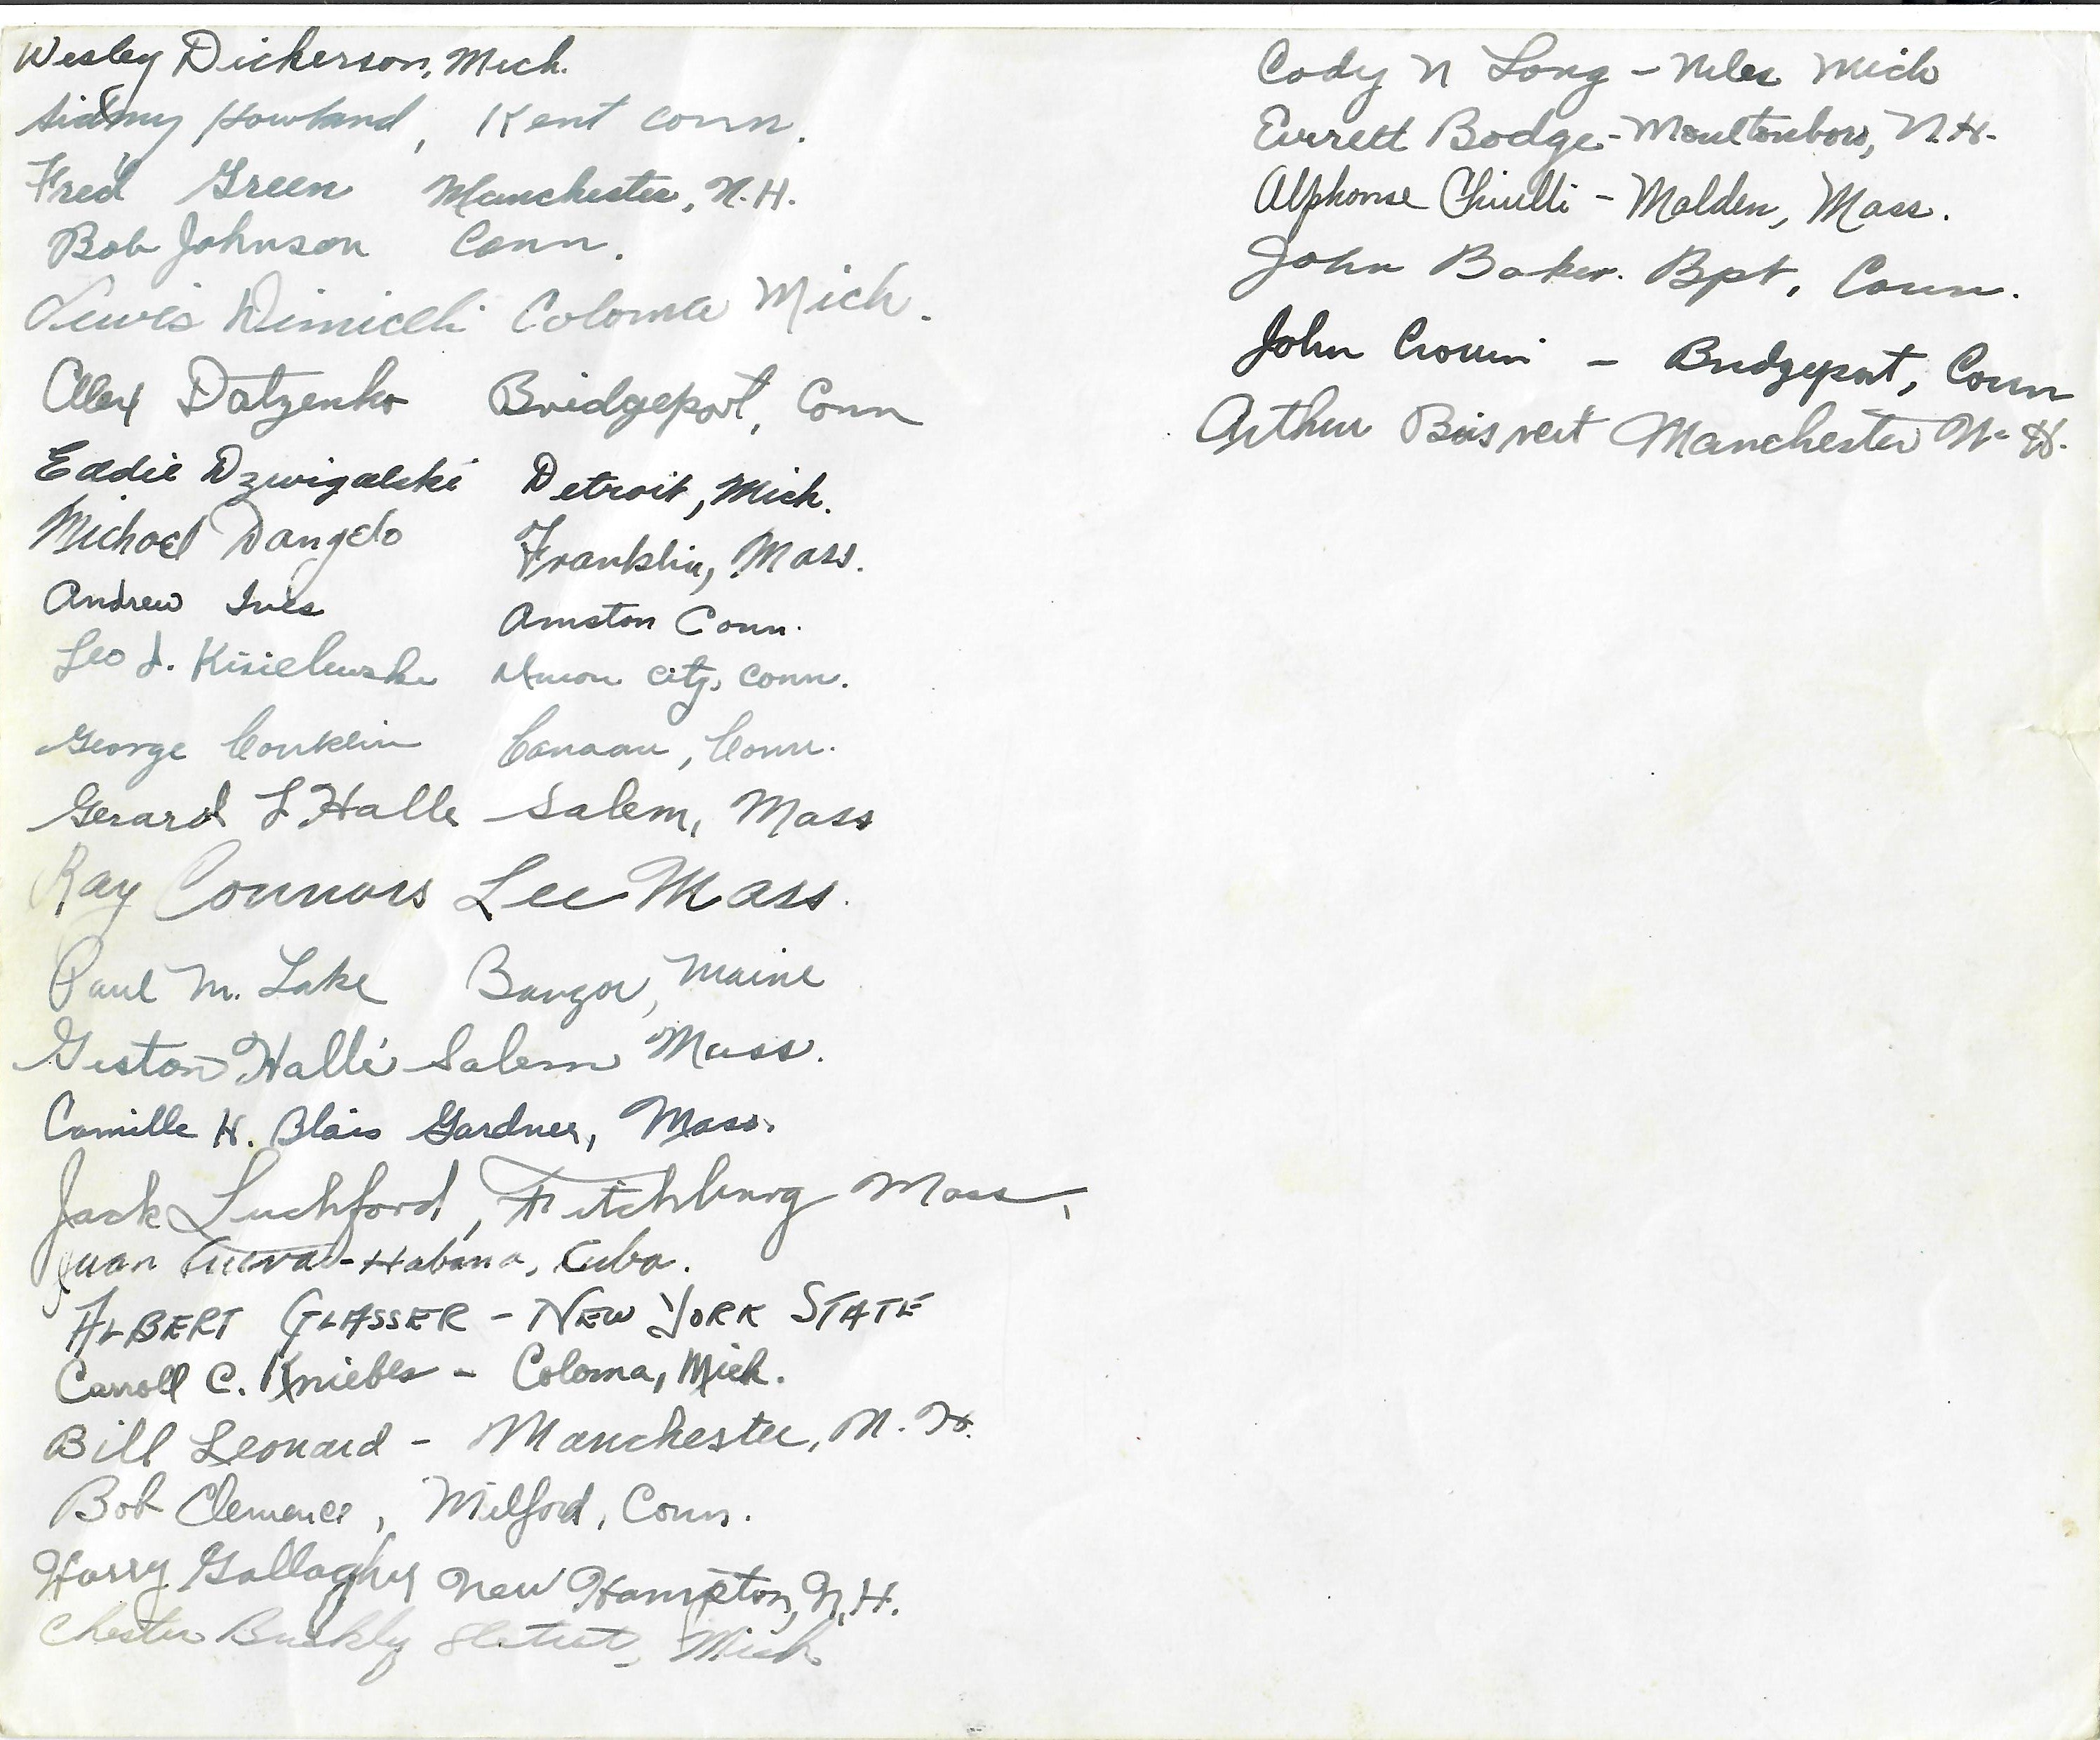 Wesley Dickerson, Mich.
Sidney Howland, Kent Conn.
Fred Green Manchester, N.H.
Bob Johnson Conn.
Lewis Dimiceli Coloma Mich.
Alex Datzenko Bridgeport, Conn
Eddie Dzwigalski Detroit, Mich.
Michael Dangelo Franklin, Mass.
Andrew Ives Amston Conn.
Leo J. Kisielewski Union City, Conn.
George Conklin Canaan, Conn.
Gerard L Halle Salem, Mass
Ray Connors Lee Mass.
Paul M. Lake Bangor, Maine
Halle Salem Mass.
Camille H. Blais Gardner, Mass.
Jack Luchford, Fitchburg Mass,
Juan Cueva - Habana, Cuba.
ALBERT GLASSER - NEW YORK STATE
Carroll C. Kniebes - Coloma, Mich.
Bill Leonard - Manchester, N. H.
Bob Clemence, Milford, Conn.
Harry Gallagher New Hampton, N.H.
Chester Mich
Cody N Long - Niles Mich
Everett Bodge - Moultonboro, N.H.
Alphonse Chiulli - Malden, Mass.
John Baker. Bpt, Conn.
John - Bridgeport, Conn
Arthur Boisvert Manchester N. H.